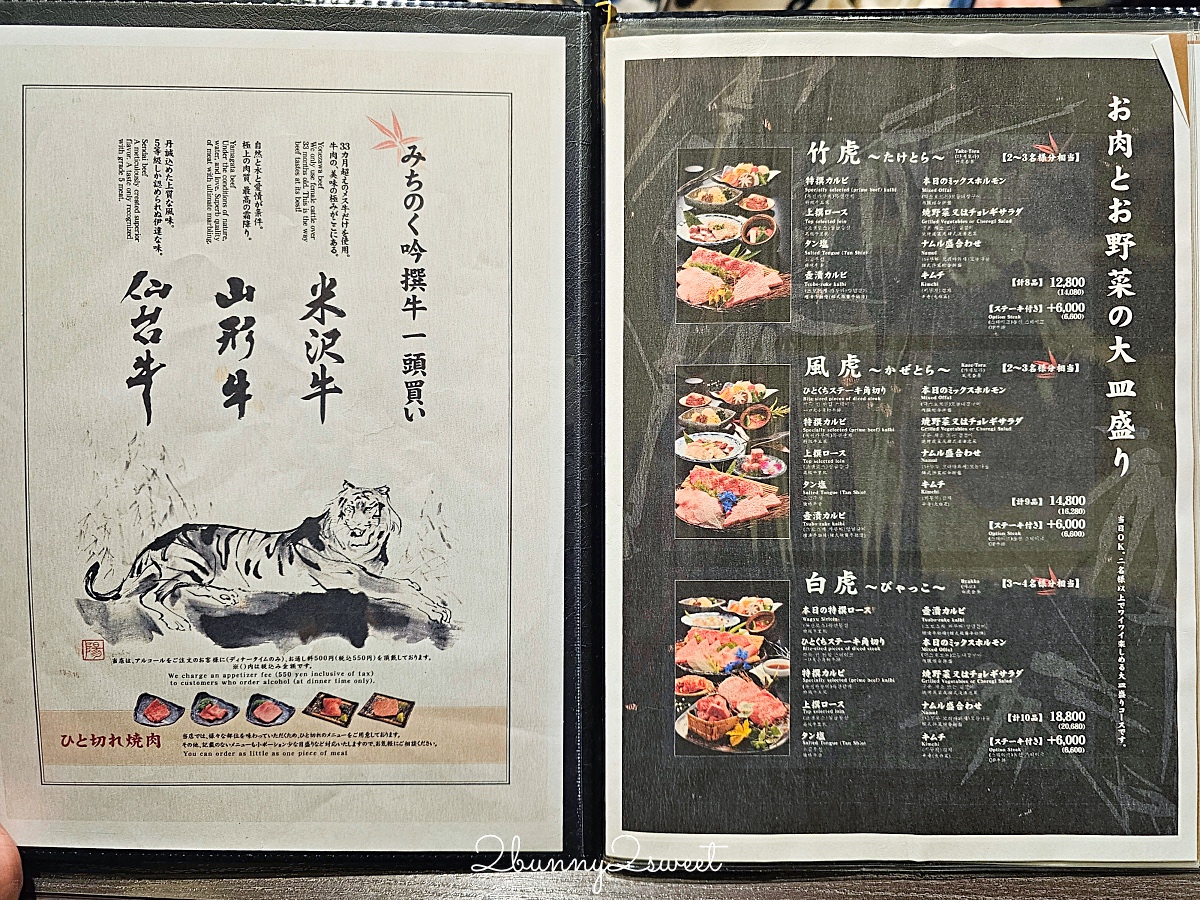 みちのく吟撰牛 一頭買い
米沢牛
33カ月超えのメス牛だけを使用。
牛肉の、美味の極みがここにある。
Yonezawa beef
We only use female cattle over
33 months old. This is the way
beef tastes at its best
山形牛
自然と水と愛情が条件。
極上の肉質、最高の霜降り。
Yamagata beef
Under the conditions of nature,
water, and love. Superb quality
of meat with ultimate marbling.
仙台牛
丹誠込めた上質な風味。
5等級しか認められぬ伊達な味。
Sendai beef
A meticulously created superior
flavor. A taste only recognized
with grade 5 meat.
当店は、アルコールをご注文のお客様に(ディナータイムのみ)、お通し料500円(税込550円)を頂戴しております。
※()内は税込み金額です。
We charge an appetizer fee (550 yen inclusive of tax)
to customers who order alcohol (at dinner time only).
ひと切れ焼肉
当店では、様々な部位を味わっていただくため、ひと切れのメニューをご用意しております。
その他、記載のないメニューもポーション少な目盛りなど対応いたしますので、お気軽にご相談ください。
You can order as little as one piece of meat
お肉とお野菜の大皿盛り
当日OK、二名様以上でワイワイ楽しめる大皿盛りコースです。
竹虎 ～たけとら～
Take-Tora
【2～3名様分相当】
特撰カルビ
Specially selected (prime beef) kalbi
上撰ロース
Top selected loin
タン塩
Salted Tongue (Tan Shio)
壺漬カルビ
Tsubo-zuke kalbi
本日のミックスホルモン
Mixed Offal
焼野菜又はチョレギサラダ
Grilled Vegetables or Choregi Salad
ナムル盛合わせ
Namul
キムチ
Kimchi
【計8品】 12,800
(14,080)
【ステーキ付き】 +6,000
Option Steak
(6,600)
風虎 ～かぜとら～
Kaze-Tora
【2～3名様分相当】
ひとくちステーキ角切り
Bite-sized pieces of diced steak
特撰カルビ
Specially selected (prime beef) kalbi
上撰ロース
Top selected loin
タン塩
Salted Tongue (Tan Shio)
壺漬カルビ
Tsubo-zuke kalbi
本日のミックスホルモン
Mixed Offal
焼野菜又はチョレギサラダ
Grilled Vegetables or Choregi Salad
ナムル盛合わせ
Namul
キムチ
Kimchi
【計9品】 14,800
(16,280)
【ステーキ付き】 +6,000
Option Steak
(6,600)
白虎 ～びゃっこ～
Byakko
【3～4名様分相当】
本日の特撰ロース
Wagyu Sirloin
ひとくちステーキ角切り
Bite-sized pieces of diced steak
特撰カルビ
Specially selected (prime beef) kalbi
上撰ロース
Top selected loin
タン塩
Salted Tongue (Tan Shio)
壺漬カルビ
Tsubo-zuke kalbi
本日のミックスホルモン
Mixed Offal
焼野菜又はチョレギサラダ
Grilled Vegetables or Choregi Salad
ナムル盛合わせ
Namul
キムチ
Kimchi
【計10品】 18,800
(20,680)
【ステーキ付き】 +6,000
Option Steak
(6,600)
2bunny2sweet